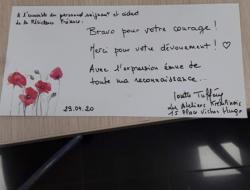 A l'ensemble du personnel soignant et aidant
de la Résidence France.
Bravo pour votre courage !
Merci pour votre dévouement ! ♡
Avec l'expression émue de
toute ma reconnaissance...
29.04.20
15 Place Victor Hugo